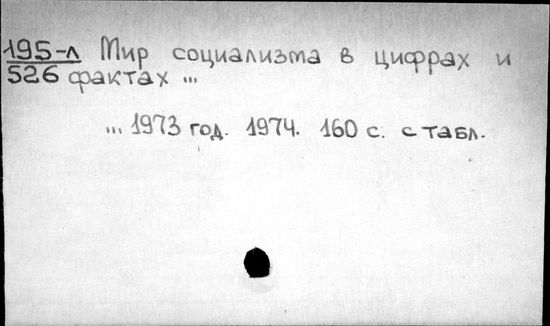 195-л Мир социализма в цифрах и
526 фактах ...
... 1973 год. 1974. 160 с. с табл.